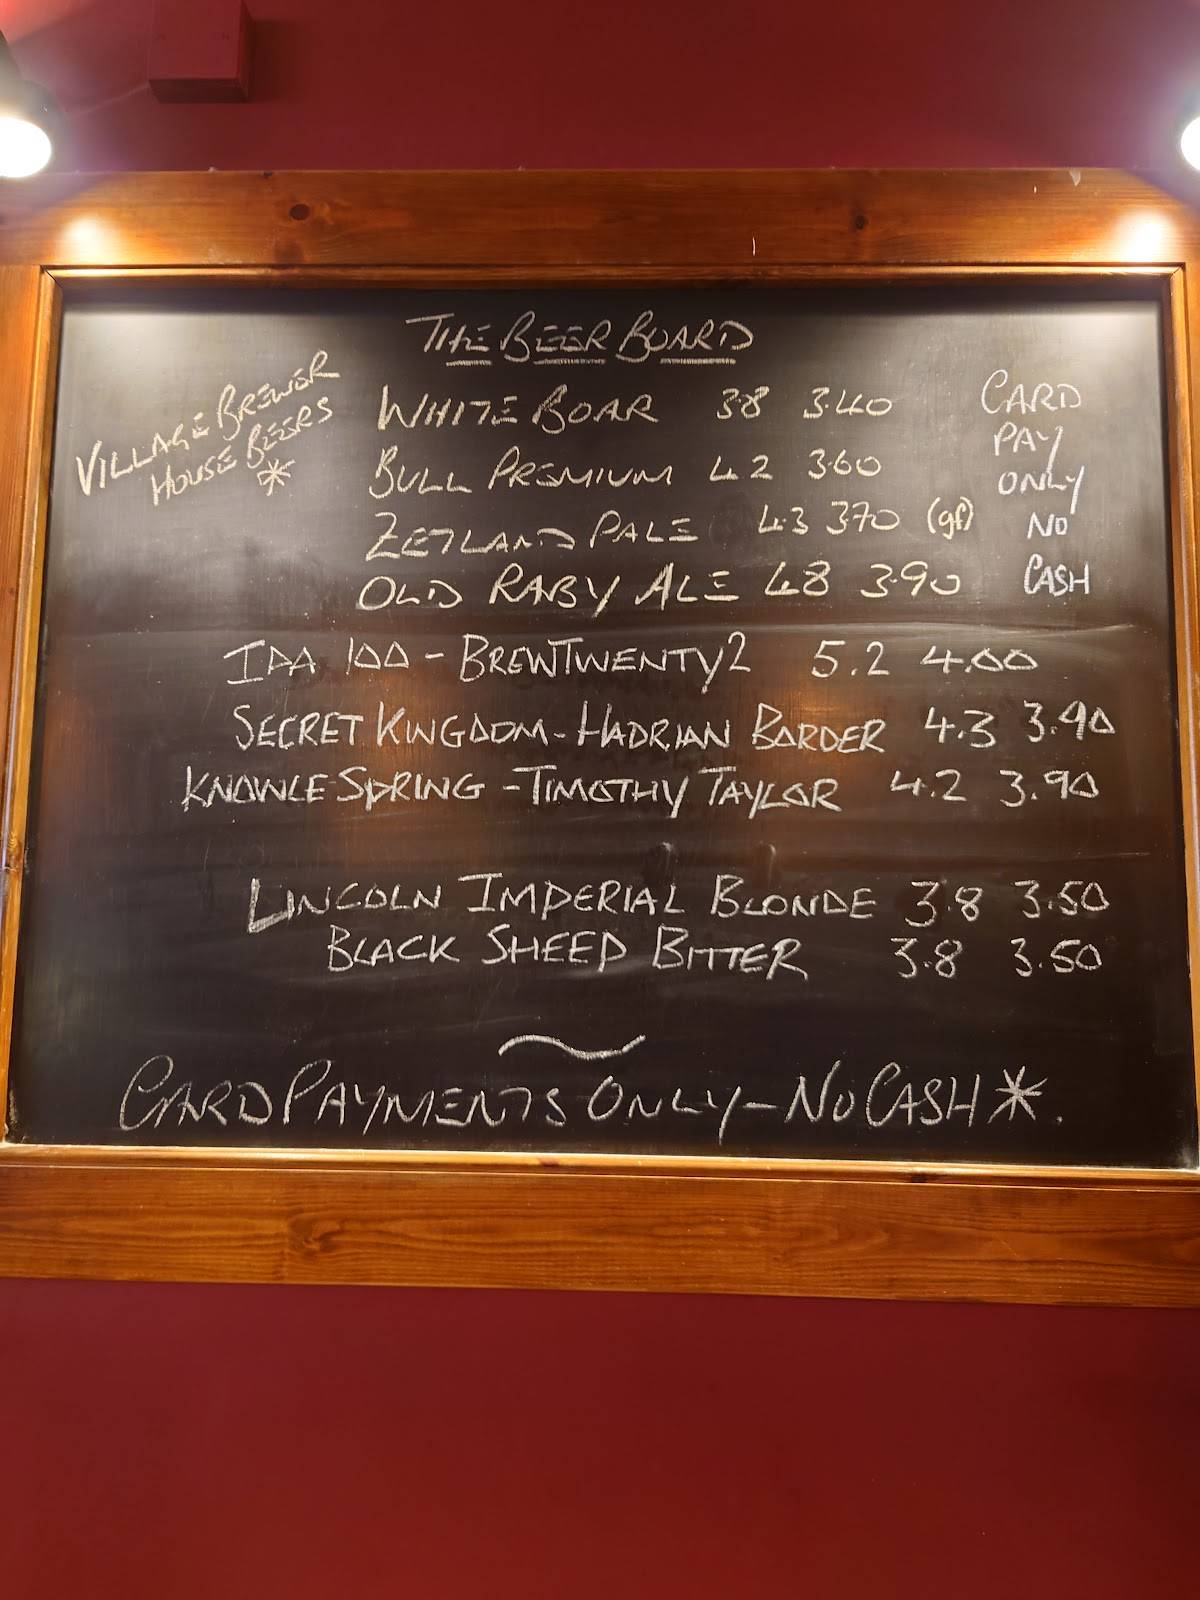 THE BEER BOARD
VILLAGE BREWER
HOUSE BEERS
*
WHITE BOAR 3.8 3.40
BULL PREMIUM 4.2 3.60
ZETLAND PALE 4.3 3.70 (gf)
OLD RABY ALE 4.8 3.90
CARD
PAY
ONLY
NO
CASH
IPA 100 - BREWTWENTY2 5.2 4.00
SECRET KINGDOM - HADRIAN BORDER 4.3 3.90
KNOWLE SPRING - TIMOTHY TAYLOR 4.2 3.90
LINCOLN IMPERIAL BLONDE 3.8 3.50
BLACK SHEEP BITTER 3.8 3.50
CARD PAYMENTS ONLY - NO CASH *.